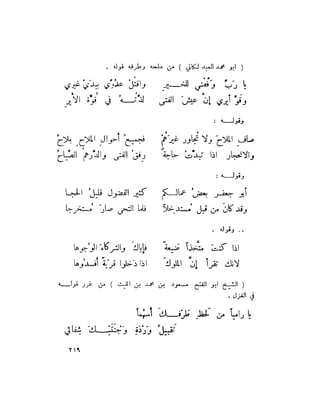 ( ابو محمد العبد لكاني ) من ملحه وطرفه قوله .
يا رَبِّ وَفِّقْني للخـــير واقتُلْ عدُوِّي بيدَيْ غيري
وقَوِّ أيري إنَّ عيشَ الفتى لذَّتُـــهُ في قُوَّة الأيرِ
وقولـــه :
صافِ الملاحَ ولا تجاور غيرَهُمْ فجميعُ أحوالِ الملاحِ ملاحُ
والانحجار اذا تبدَّتْ حاجةٌ رفقُ الفتى والدِّرهمُ الصَّيَّاحُ
وقولـــه :
أبو جعفـر بعضُ عمالـكم كثير الفضول قليلُ الحجـا
وقد كانَ من قبل مُستدخِلاً فلما التحى صارَ مُستخرجا
.. وقوله .
اذا كنتَ متَّخذاً ضيعةً فإياكَ والشركاءَ الوجوها
لانك تقرأ إنَّ الملوكَ اذا دَخلوا قريةً أفسدُوها
( الشيخ ابو الفتح مسعود بن محمد بن الليث ) من غرر قولـــه
في الغزل .
يا رامياً من لحظِ طرْفـــكَ أسهُماً
تقبيلُ وَرْدَةِ وَجْنَتَيْـــكَ شِفائي
٢١٩